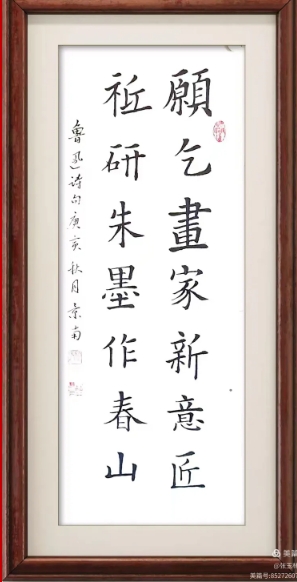 願乞畫家新意匠
祗研朱墨作春山
魯迅诗句庚亥秋月景南
美篇
@张玉林
美篇号:8527260